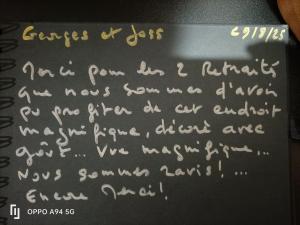 Georges et Joss 29/8/25
Merci pour les 2 Retraités
que nous sommes d'avoir
pu profiter de cet endroit
magnifique, décoré avec
goût... Vue magnifique,...
Nous sommes ravis!...
Encore Merci!
OPPO A94 5G